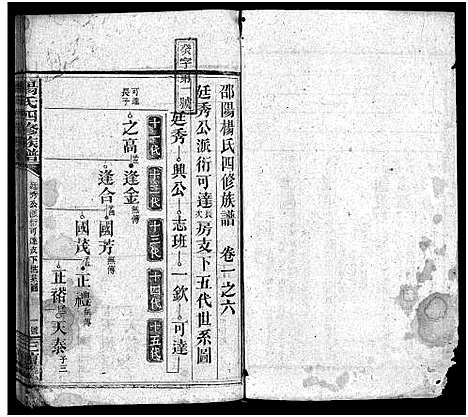 癸字第一號
邵陽楊氏四修族譜 卷一之六
廷秀公派衍可達長房支下五代世系圖
廷秀 興公 志班 一欽 可達
十一代 十二代 十三代 十四代 十五代
可達長子 之高 逢金 無傳
逢合 國芳 無傳
國茂 正禮 無傳
正𥙿 天泰 子三
楊氏四修族譜
廷秀公派衍可達支下世系圖